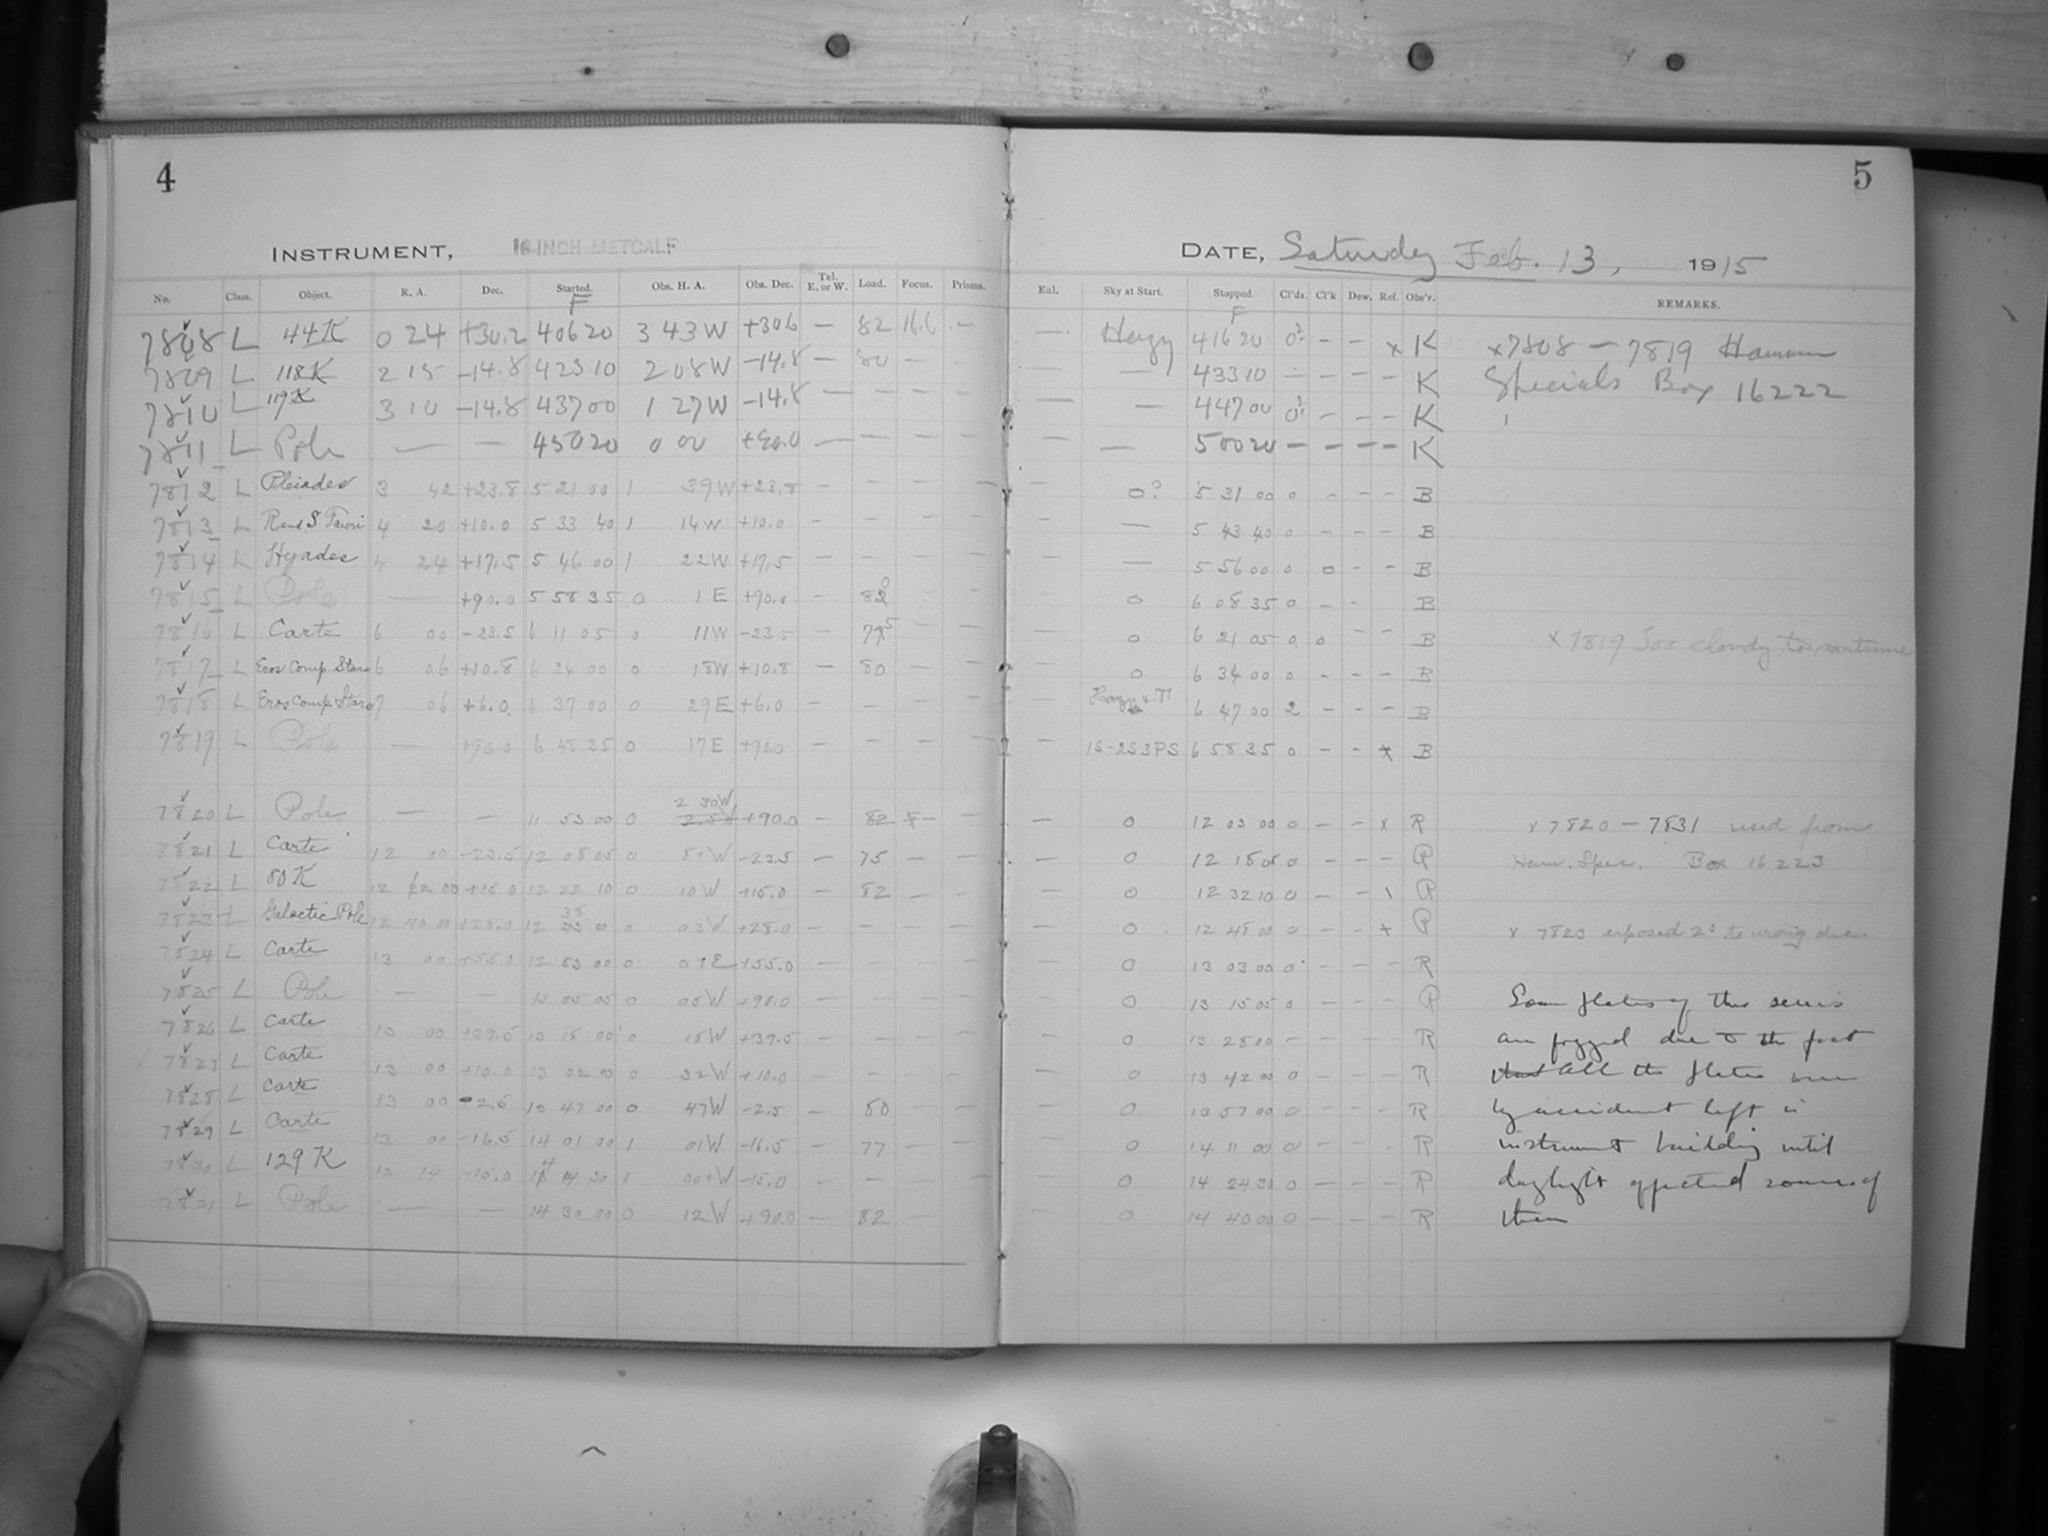 4
5
INSTRUMENT, 16 INCH METCALF
DATE, Saturday Feb. 13, 1915
No. Class. Object. R. A. Dec. Started. Obs. H. A. Obs. Dec. Tel. E. or W. Load. Focus. Prisms. Eul. Sky at Start. Stopped Cl'ds. Cl'k Dew. Ref. Obs'r. REMARKS.
F F
7808 L 44K 0 24 +30.2 40620 3 43W +30.6 — 82 16.6 — — Hazy 41620 0? — — x K x7808 — 7819 Hammer
7809 L 118K 2 15 -14.8 42310 2 08W -14.8 — 80 — — — 43310 — — — — K Specials Box 16222
7810 L 119K 3 10 -14.8 43700 1 27W -14.8 — — — — — — 44700 0? — — — K
7811 L Pole — — 45020 0 00 +90.0 — — — — — — 50020 — — — — K
7812 L Pleiades 3 42 +23.8 5 21 00 1 39W +23.8 — — — — — 0? 5 31 00 0 — — — B
7813 L R and S Tauri 4 20 +10.0 5 33 40 1 14W +10.0 — — — — — — 5 43 40 0 — — — B
7814 L Hyades 4 24 +17.5 5 46 00 1 22W +17.5 — — — — — — 5 56 00 0 0 — — B
7815 L Pole — +90.0 5 58 35 0 1E +90.0 — 80 — — 0 6 08 35 0 — — B
7816 L Carte 6 00 -23.5 6 11 05 0 11W -23.5 — 75 — — — 0 6 21 05 0 0 — — B x7819 Too cloudy to continue
7817 L Eros Comp. Stars 6 06 +10.8 6 24 00 0 18W +10.8 — 80 — — — 0 6 34 00 0 — — — B
7818 L Eros Comp Stars 7 06 +6.0 6 37 00 0 29E +6.0 — — — — — Hazy 6 47 00 2 — — — B
7819 L Pole — +90.0 6 48 35 0 17E +90.0 — — — — — 1S-2S3PS 6 58 35 0 — — x B
7820 L Pole — — 11 53 00 0 2 30W +90.0 — 82 — — — 0 12 03 00 0 — — x R x7820 — 7831 used from
7821 L Carte 12 00 -23.5 12 08 05 0 W -23.5 — 75 — — — 0 12 18 05 0 — — — R Ham. Spec. Box 16223
7822 L 80K 12 12 00 +15.0 12 22 10 0 10W +15.0 — 82 — — — 0 12 32 10 0 — — R
7823 L Galactic Pole 12 40 00 +28.0 12 38 00 0 03W +28.0 — — — — — 0 12 48 00 0 — — x R x 7823 exposed 2s to wrong dec
7824 L Carte 13 00 +55.0 12 53 00 0 07E +55.0 — — — — — 0 13 03 00 0 — — — R
7825 L Pole — — 13 05 05 0 05W +90.0 — — — — — 0 13 15 05 0 — — — R Some plates of this series
7826 L Carte 13 00 +39.5 13 18 00 0 18W +39.5 — — — — — 0 13 28 00 — — — — R are fogged due to the fact
7827 L Carte 13 00 +10.0 13 32 00 0 32W +10.0 — — — — — 0 13 42 00 0 — — — R that all the plates were
7828 L Carte 13 00 -2.5 13 47 00 0 47W -2.5 — 80 — — — 0 13 57 00 0 — — — R by accident left in
7829 L Carte 13 00 -16.5 14 01 00 1 01W -16.5 — 77 — — — 0 14 11 00 0 — — — R instrument building until
7830 L 129K 13 14 -15.0 14 14 30 1 W -15.0 — — — — — 0 14 24 30 0 — — — R daylight affected some of
7831 L Pole — — 14 30 00 0 12W +90.0 — 82 — — 0 14 40 00 0 — — — R them